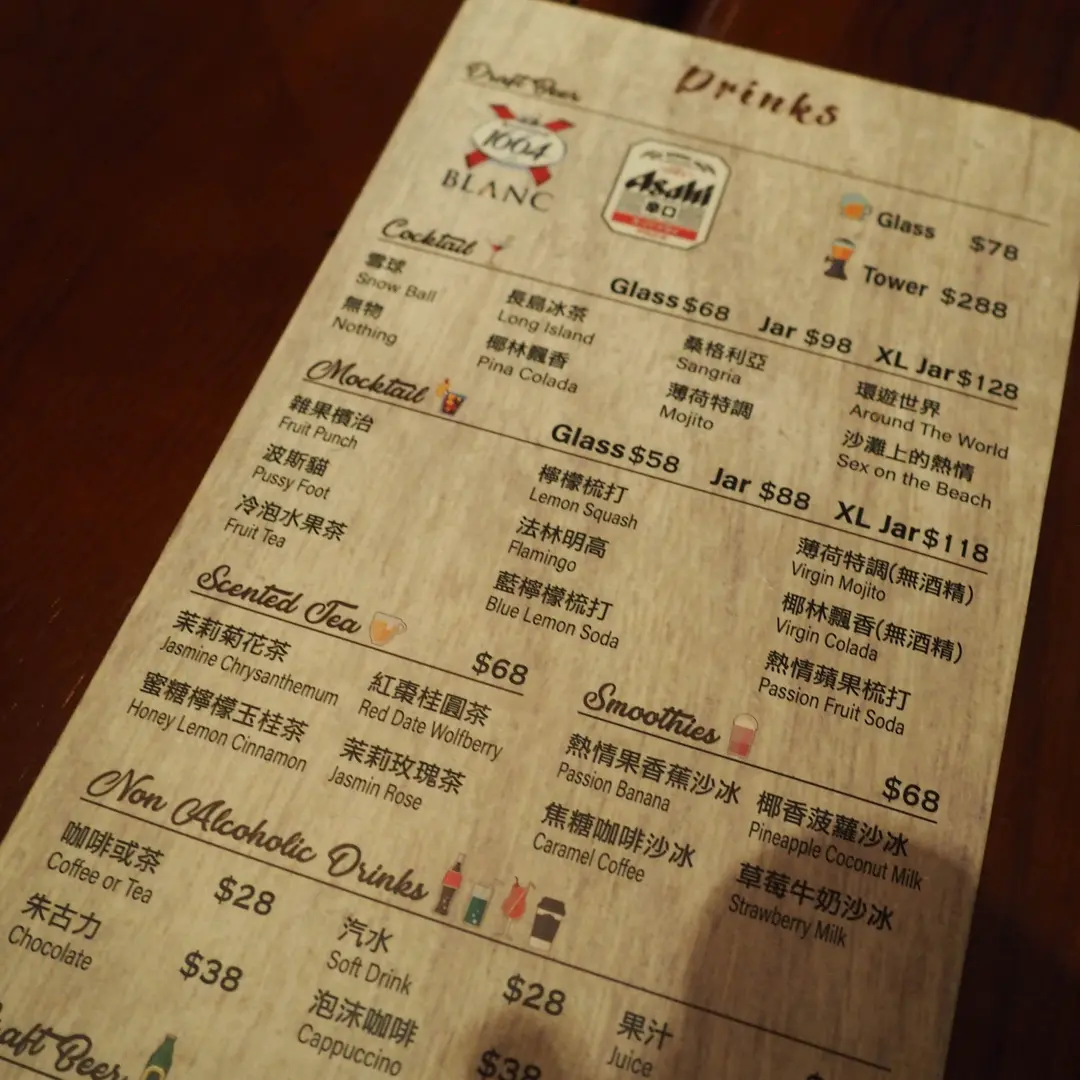 Drinks
Draft Beer
1664
BLANC
Asahi
辛口
Glass $78
Tower $288
Cocktail
Glass $68 Jar $98 XL Jar $128
雪球
Snow Ball
無物
Nothing
長島冰茶
Long Island
椰林飄香
Pina Colada
桑格利亞
Sangria
薄荷特調
Mojito
環遊世界
Around The World
沙灘上的熱情
Sex on the Beach
Mocktail
Glass $58 Jar $88 XL Jar $118
雜果檳治
Fruit Punch
波斯貓
Pussy Foot
冷泡水果茶
Fruit Tea
檸檬梳打
Lemon Squash
法林明高
Flamingo
藍檸檬梳打
Blue Lemon Soda
薄荷特調(無酒精)
Virgin Mojito
椰林飄香(無酒精)
Virgin Colada
熱情蘋果梳打
Passion Fruit Soda
Scented Tea
$68
茉莉菊花茶
Jasmine Chrysanthemum
蜜糖檸檬玉桂茶
Honey Lemon Cinnamon
紅棗桂圓茶
Red Date Wolfberry
茉莉玫瑰茶
Jasmin Rose
Smoothies
$68
熱情果香蕉沙冰
Passion Banana
焦糖咖啡沙冰
Caramel Coffee
椰香菠蘿沙冰
Pineapple Coconut Milk
草莓牛奶沙冰
Strawberry Milk
Non Alcoholic Drinks
咖啡或茶
Coffee or Tea
$28
朱古力
Chocolate
$38
汽水
Soft Drink
$28
泡沫咖啡
Cappuccino
$38
果汁
Juice
aft Beer